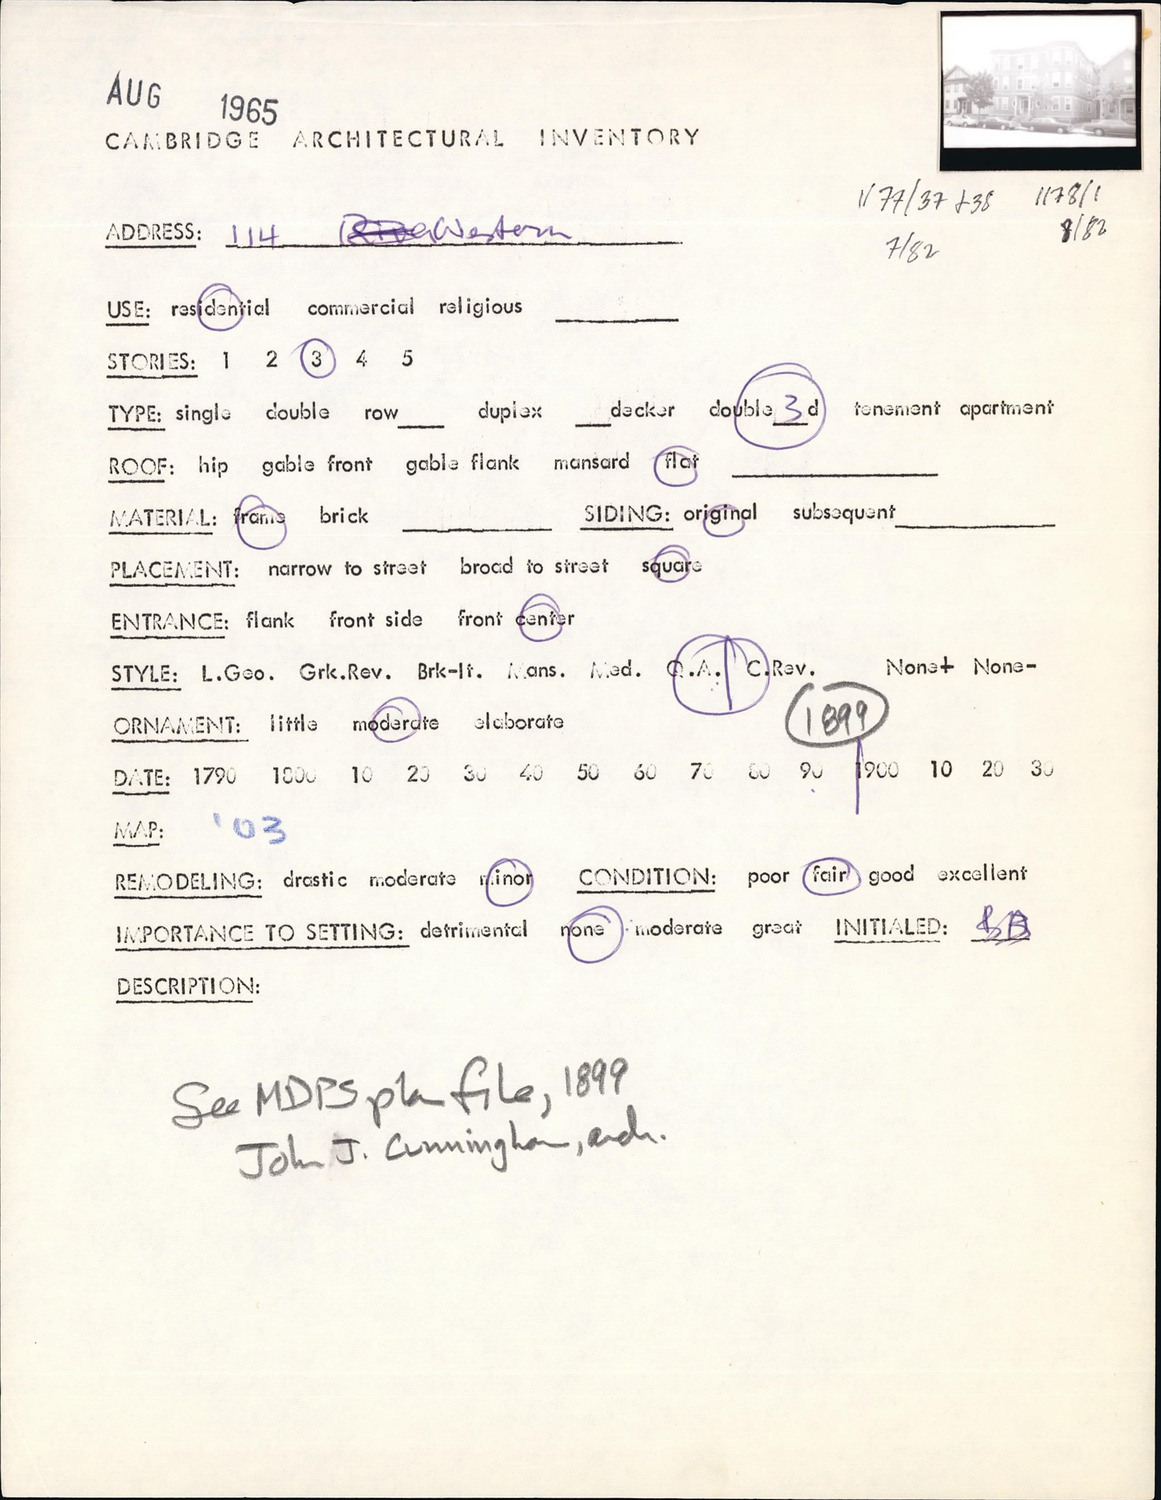 AUG 1965
CAMBRIDGE ARCHITECTURAL INVENTORY
1177/37 +38 1178/1
7/82 8/82
ADDRESS: 114 Western
USE: residential commercial religious
STORIES: 1 2 3 4 5
TYPE: single double row___ duplex ___decker double 3 d tenement apartment
ROOF: hip gable front gable flank mansard flat
MATERIAL: frame brick SIDING: original subsequent
PLACEMENT: narrow to street broad to street square
ENTRANCE: flank front side front center
STYLE: L.Geo. Grk.Rev. Brk-It. Mans. Med. Q.A. C.Rev. None+ None-
ORNAMENT: little moderate elaborate 1899
DATE: 1790 1800 10 20 30 40 50 60 70 80 90 1900 10 20 30
MAP: '03
REMODELING: drastic moderate minor CONDITION: poor fair good excellent
IMPORTANCE TO SETTING: detrimental none moderate great INITIALED:
DESCRIPTION:
See MDPS plan file, 1899
John J. Cunningham, arch.